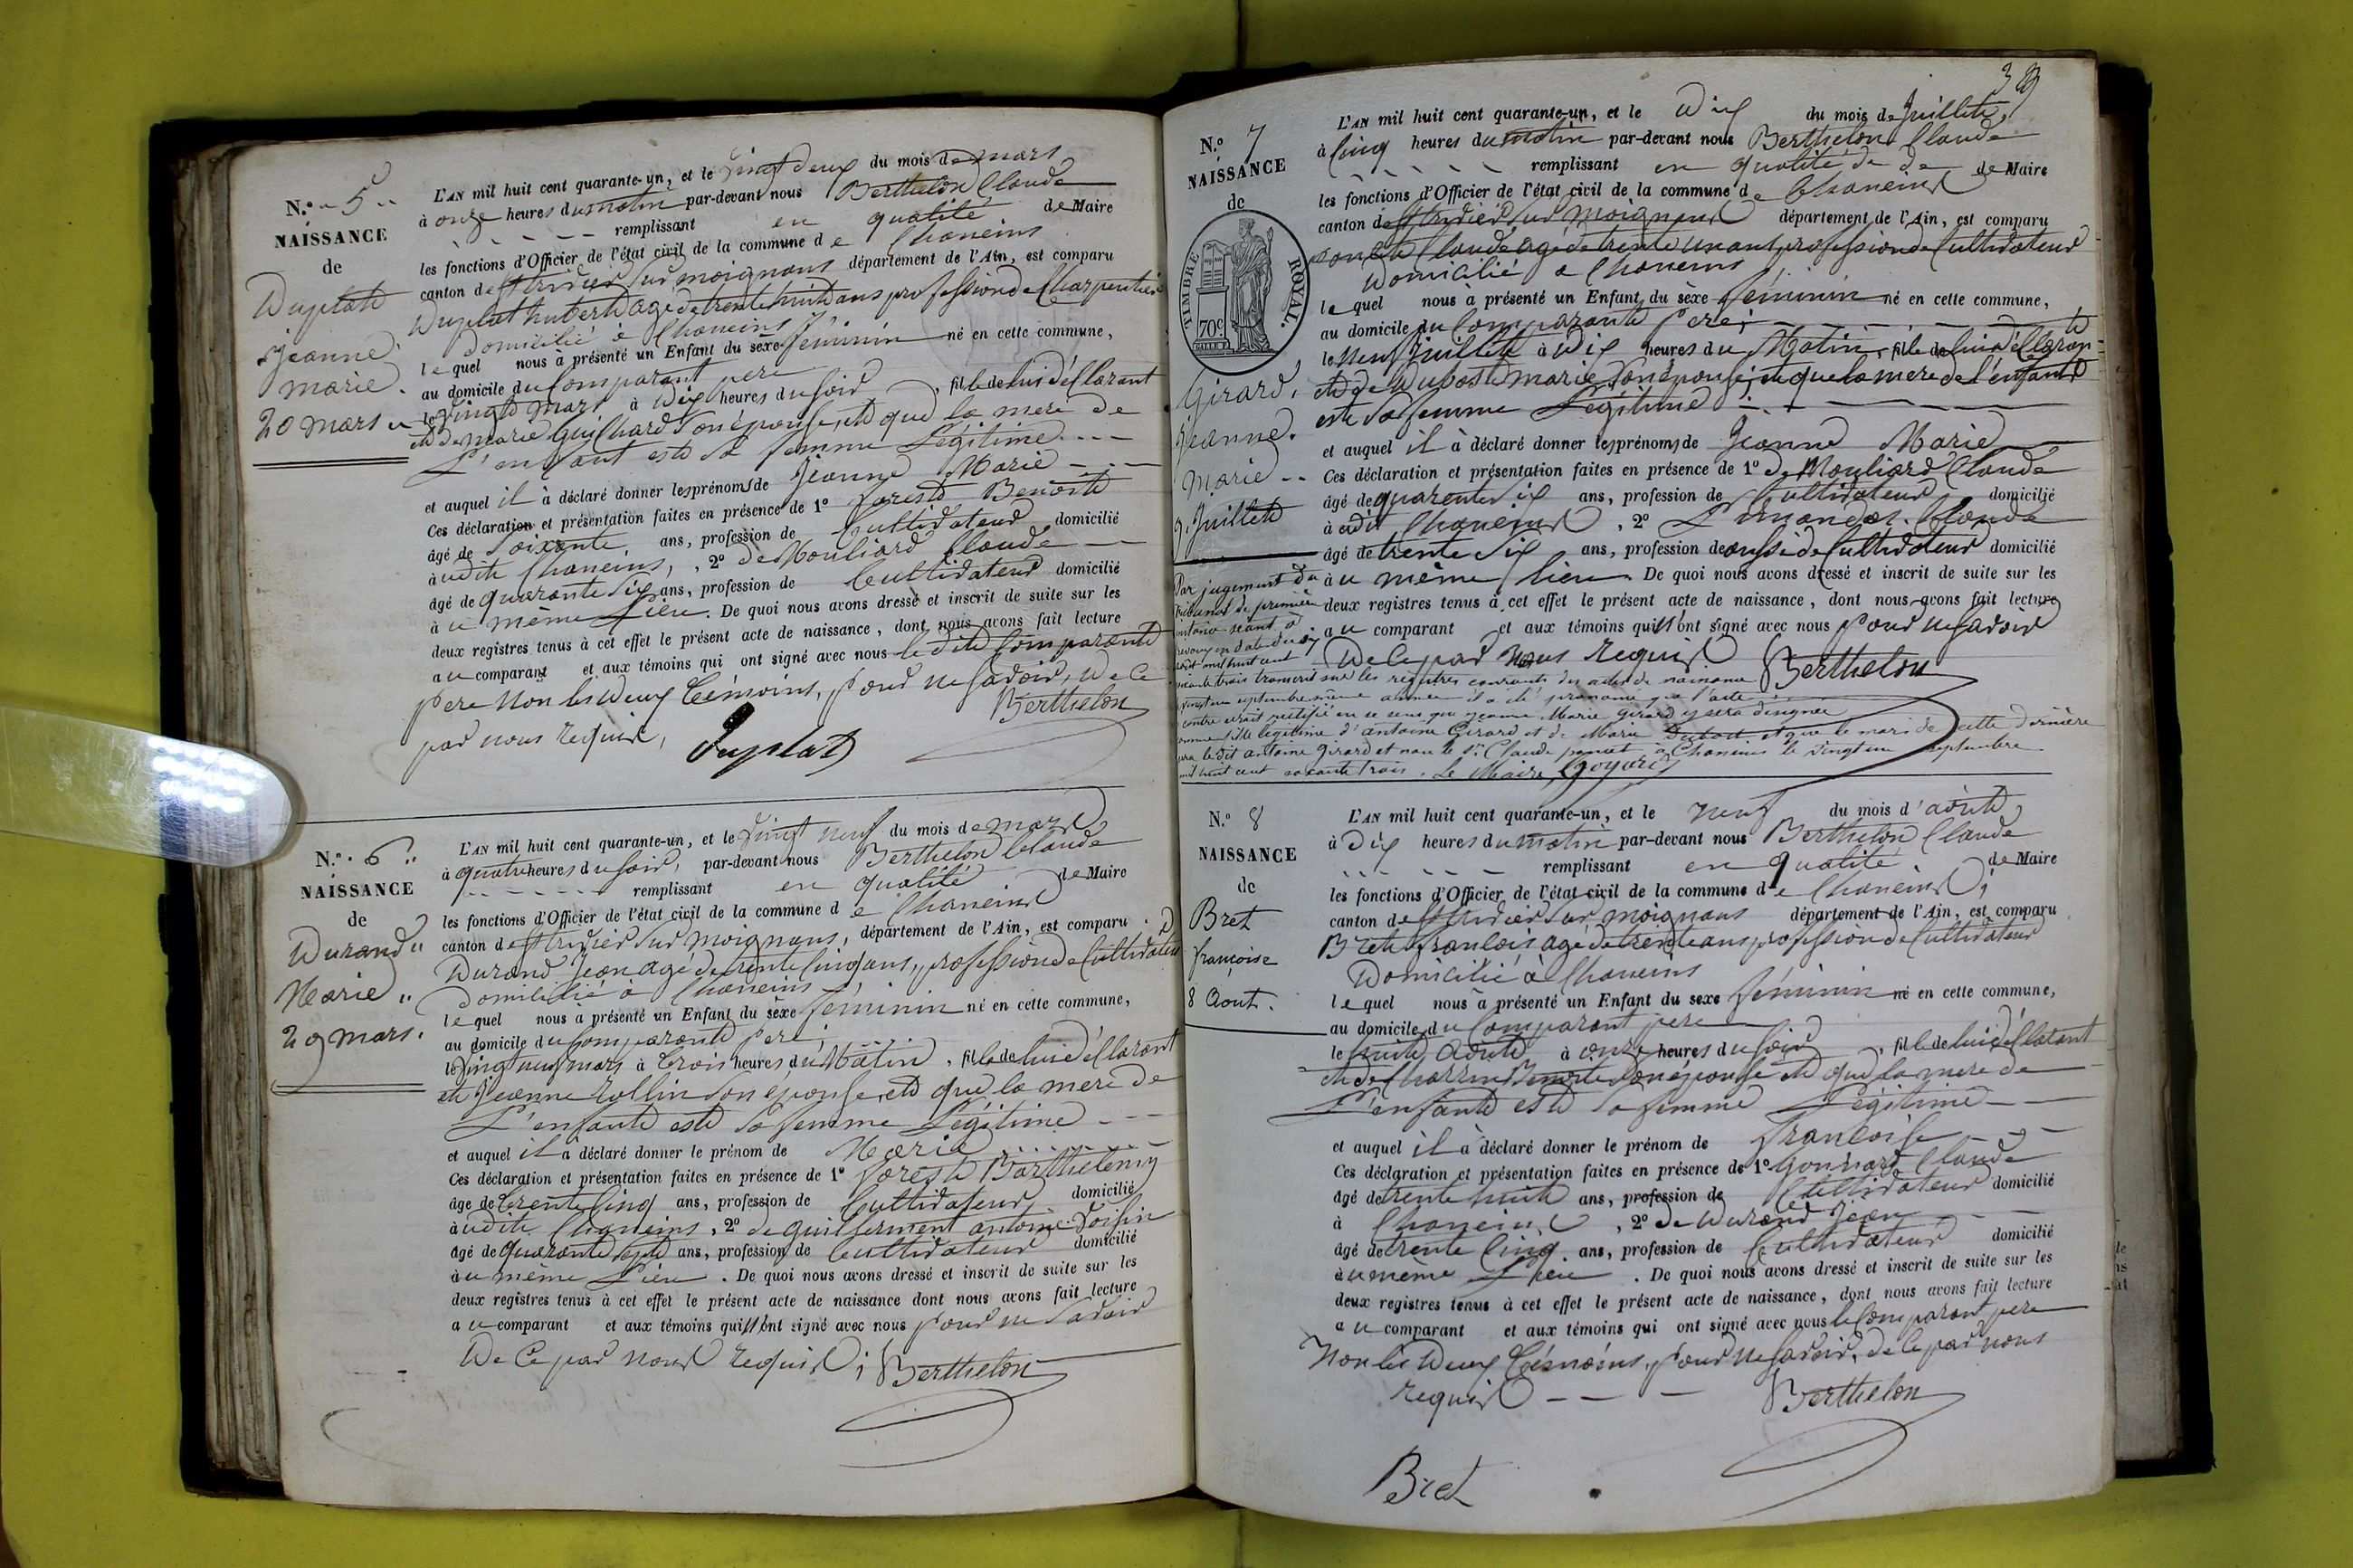 N.° 5
NAISSANCE
de
Duplat
Jeanne
marie.
20 mars
L'AN mil huit cent quarante-un, et le vingt deux du mois de mars
à onze heures du matin par-devant nous Berthelon Claude
remplissant en qualité de Maire
les fonctions d'Officier de l'état civil de la commune de Chaneins
canton de st trivier sur moignans département de l'Ain, est comparu
Duplat hubert agé de trente huit ans profession de Charpentier
domicilié à Chaneins
lequel nous à présenté un Enfant du sèxe féminin né en cette commune,
au domicile du Comparant pere
le vingt mars à dix heures du soir, fille de lui déClarant
et de marie Guichard son épouse, et que la mere de
L'enfant est sa femme Légitime
et auquel il à déclaré donner les prénoms de Jeanne Marie
Ces déclaration et présentation faites en présence de 1° forest Benoit
âgé de soixante ans, profession de Cultivateur domicilié
audit Chaneins, 2° de Mouliard Claude
âgé de quarante six ans, profession de Cultivateur domicilié
au même Lieu. De quoi nous avons dressé et inscrit de suite sur les
deux registres tenus à cet effet le présent acte de naissance, dont nous avons fait lecture
au comparant et aux témoins qui ont signé avec nous ledit Comparant
pere non les deux témoins, pour ne savoir, de Ce
par nous requis, Berthelon
Duplat
N.° 6
NAISSANCE
de
Durand
Marie
29 mars.
L'AN mil huit cent quarante-un, et le vingt neuf du mois de mars
à quatre heures du soir, par-devant nous Berthelon Claude
remplissant en qualité de Maire
les fonctions d'Officier de l'état civil de la commune de Chaneins
canton de st trivier sur moignans, département de l'Ain, est comparu
Durand Jean agé de trente Cinq ans, profession de Cultivateur
domicilié à Chaneins
lequel nous à présenté un Enfant du sèxe féminin né en cette commune,
au domicile du Comparant Pere
le vingt neuf mars à trois heures du Matin, fille de lui déClarant
et Jeanne rollin son épouse, et que la mere de
L'enfant est sa femme Légitime
et auquel il à déclaré donner le prénom de Marie
Ces déclaration et présentation faites en présence de 1° forest Barthelemy
âgé de trente Cinq ans, profession de Cultivateur domicilié
audit Chaneins, 2° de guillerment antoine voisin
âgé de quarante sept ans, profession de Cultivateur domicilié
au même Lieu. De quoi nous avons dressé et inscrit de suite sur les
deux registres tenus à cet effet le présent acte de naissance dont nous avons fait lecture
au comparant et aux témoins qui ont signé avec nous pour ne savoir
de Ce par nous requis; Berthelon
39
N.° 7
NAISSANCE
de
TIMBRE ROYAL.
70c
Girard,
Jeanne.
Marie
9. Juillet
L'AN mil huit cent quarante-un, et le dix du mois de Juillet,
à Cinq heures du matin par-devant nous Berthelon Claude
remplissant en qualité de de de Maire
les fonctions d'Officier de l'état civil de la commune de Chaneins
canton de st trivier sur moignans département de l'Ain, est comparu
Claude agé de trente un ans, profession de Cultivateur
Domicilié a Chaneins
lequel nous à présenté un Enfant du sèxe féminin né en cette commune,
au domicile du Comparant Pere;
le neuf Juillet à dix heures du Matin, fille de lui déClarant
et de Dubost marie son épouse, et que la mere de l'enfant
est sa femme Légitime
et auquel il à déclaré donner les prénoms de Jeanne Marie
Ces déclaration et présentation faites en présence de 1° de Mouliard Claude
âgé de quarente six ans, profession de Cultivateur domicilié
audit Chaneins, 2° Claude
âgé de trente six ans, profession de aussi de Cultivateur domicilié
au même lieu. De quoi nous avons dressé et inscrit de suite sur les
deux registres tenus à cet effet le présent acte de naissance, dont nous avons fait lecture
au comparant et aux témoins qui ont signé avec nous pour ne savoir
de Ce par nous requis Berthelon
Par jugement du
tribunal de première
instance séant à
en date du
mil huit cent
trois transcrit sur les registres courants des actes de naissance
vingt un septembre même année il a été prononcé que l'acte
contre serait rectifié en ce sens que jeanne Marie Girard y sera désignée
comme fille légitime d'antoine Girard et de Marie Dubost et que le mari de cette dernière
sera le dit antoine Girard et non le sr. Claude poncet, à Chaneins le vingt un septembre
mil huit cent soixante trois. Le Maire,
N.° 8
NAISSANCE
de
Bret
françoise
8 Aout.
L'AN mil huit cent quarante-un, et le neuf du mois d'août,
à dix heures du matin par-devant nous Berthelon Claude
remplissant en qualité de Maire
les fonctions d'Officier de l'état civil de la commune de Chaneins;
canton de st trivier sur moignans département de l'Ain, est comparu
Bret françois agé de trente ans profession de Cultivateur
Domicilié à Chaneins
lequel nous à présenté un Enfant du sexe féminin né en cette commune,
au domicile du Comparant pere
le huit Août à onze heures du soir, fille de lui déClarant
et de Benoite son épouse et que la mere de
L'enfant est sa femme Légitime
et auquel il à déclaré donner le prénom de françoise
Ces déclaration et présentation faites en présence de 1° Gonnard Claude
âgé de trente huit ans, profession de Cultivateur domicilié
à Chaneins, 2° de Durand Jean
âgé de trente Cinq ans, profession de Cultivateur domicilié
au même Lieu. De quoi nous avons dressé et inscrit de suite sur les
deux registres tenus à cet effet le présent acte de naissance, dont nous avons fait lecture
au comparant et aux témoins qui ont signé avec nous le Comparant pere
Non les Deux témoins, pour ne savoir, de Ce par nous
requis Berthelon
Bret